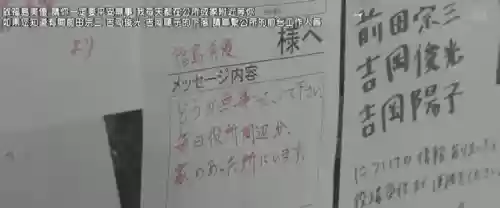 致福島秀優 請你一定要平安無事 我每天都在公所或家附近等你
如果您知道有關前田宗三 吉岡俊光 吉岡陽子的下落 請聯繫公所的前台工作人員
より
様へ
メッセージ内容
どうか無事でいて下さい。
毎日役所周辺か、
家のあった所にいます。
前田宗三
吉岡俊光
吉岡陽子
についての情報